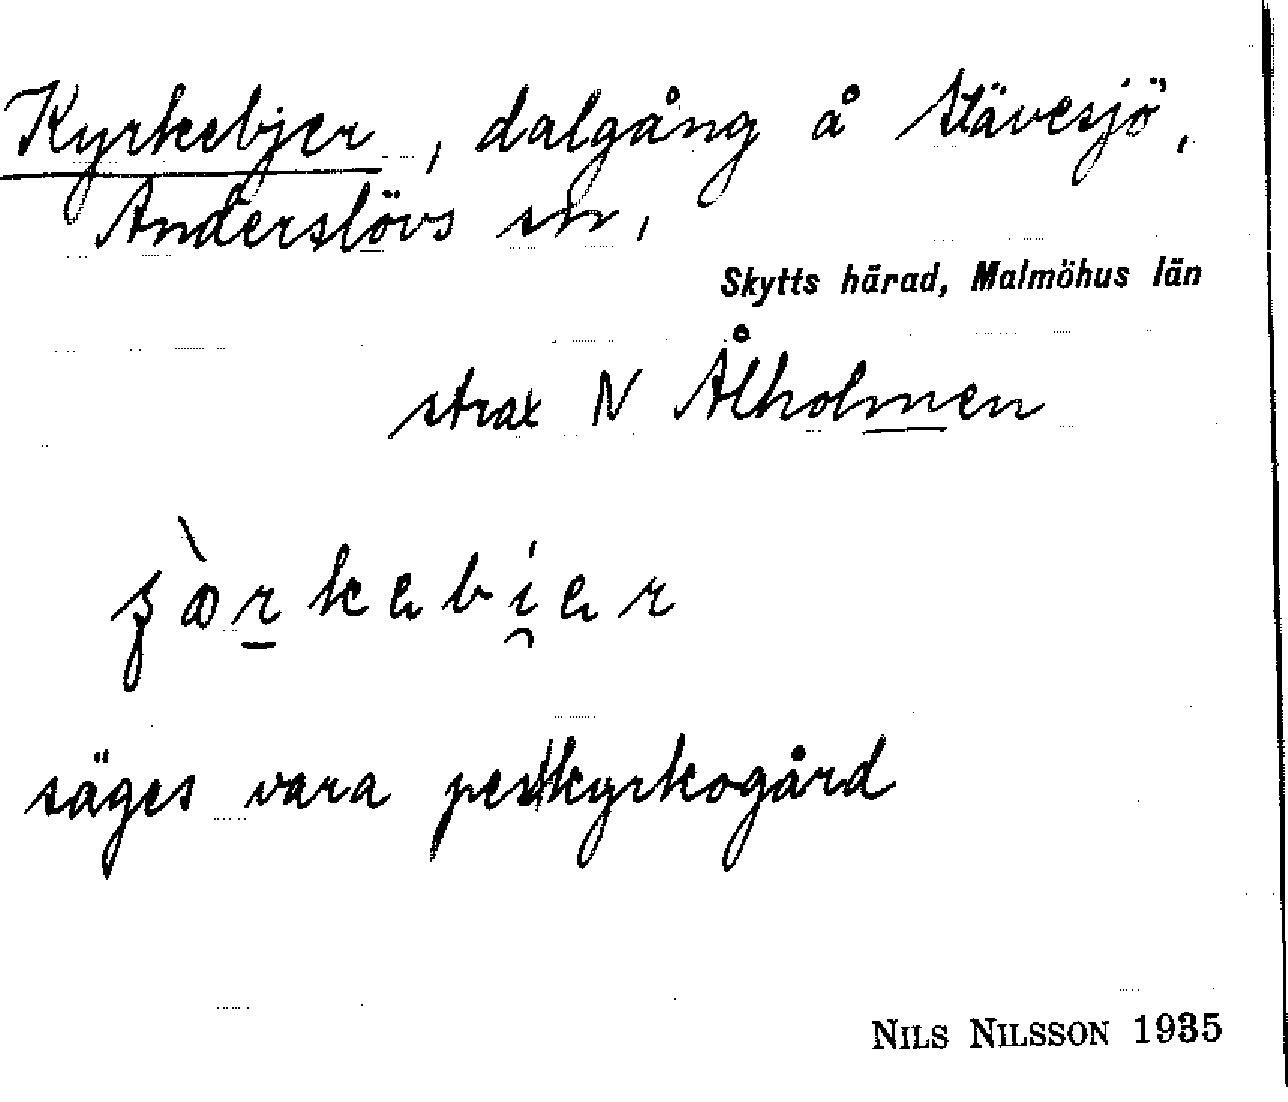 Kyrkebjer, dalgång å Stävesjö,
Anderslövs sn,
Skytts härad, Malmöhus län
strax N Ålholmen
säges vara pestkyrkogård
NILS NILSSON 1935